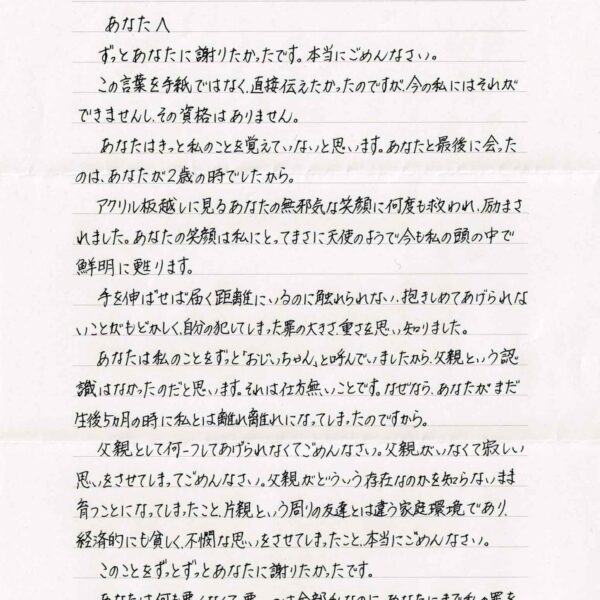 あなたへ
ずっとあなたに謝りたかったです。本当にごめんなさい。
この言葉を手紙ではなく、直接伝えたかったのですが、今の私にはそれが
できませんし、その資格はありません。
あなたはきっと私のことを覚えていないと思います。あなたと最後に会った
のは、あなたが2歳の時でしたから。
アクリル板越しに見るあなたの無邪気な笑顔に何度も救われ、励まさ
れました。あなたの笑顔は私にとってまさに天使のようで今も私の頭の中で
鮮明に甦ります。
手を伸ばせば届く距離にいるのに触れられない、抱きしめてあげられな
いことがもどかしく、自分の犯してしまった罪の大きさ、重さを思い知りました。
あなたは私のことをずっと「おじいちゃん」と呼んでいましたから、父親という認
識はなかったのだと思います。それは仕方無いことです。なぜなら、あなたがまだ
生後5ヵ月の時に私とは離れ離れになってしまったのですから。
父親として何一つしてあげられなくてごめんなさい。父親がいなくて寂しい
思いをさせてしまってごめんなさい。父親がどういう存在なのかを知らないまま
育つことになってしまったこと、片親という周りの友達とは違う家庭環境であり、
経済的にも貧しく、不憫な思いをさせてしまったこと、本当にごめんなさい。
このことをずっとずっとあなたに謝りたかったです。